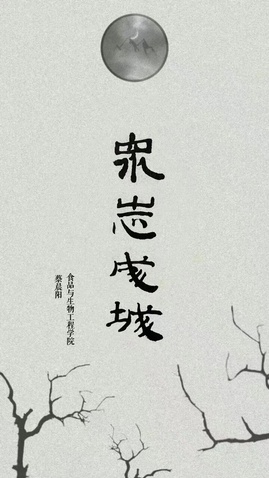 眾志成城
食品与生物工程学院
蔡晨阳